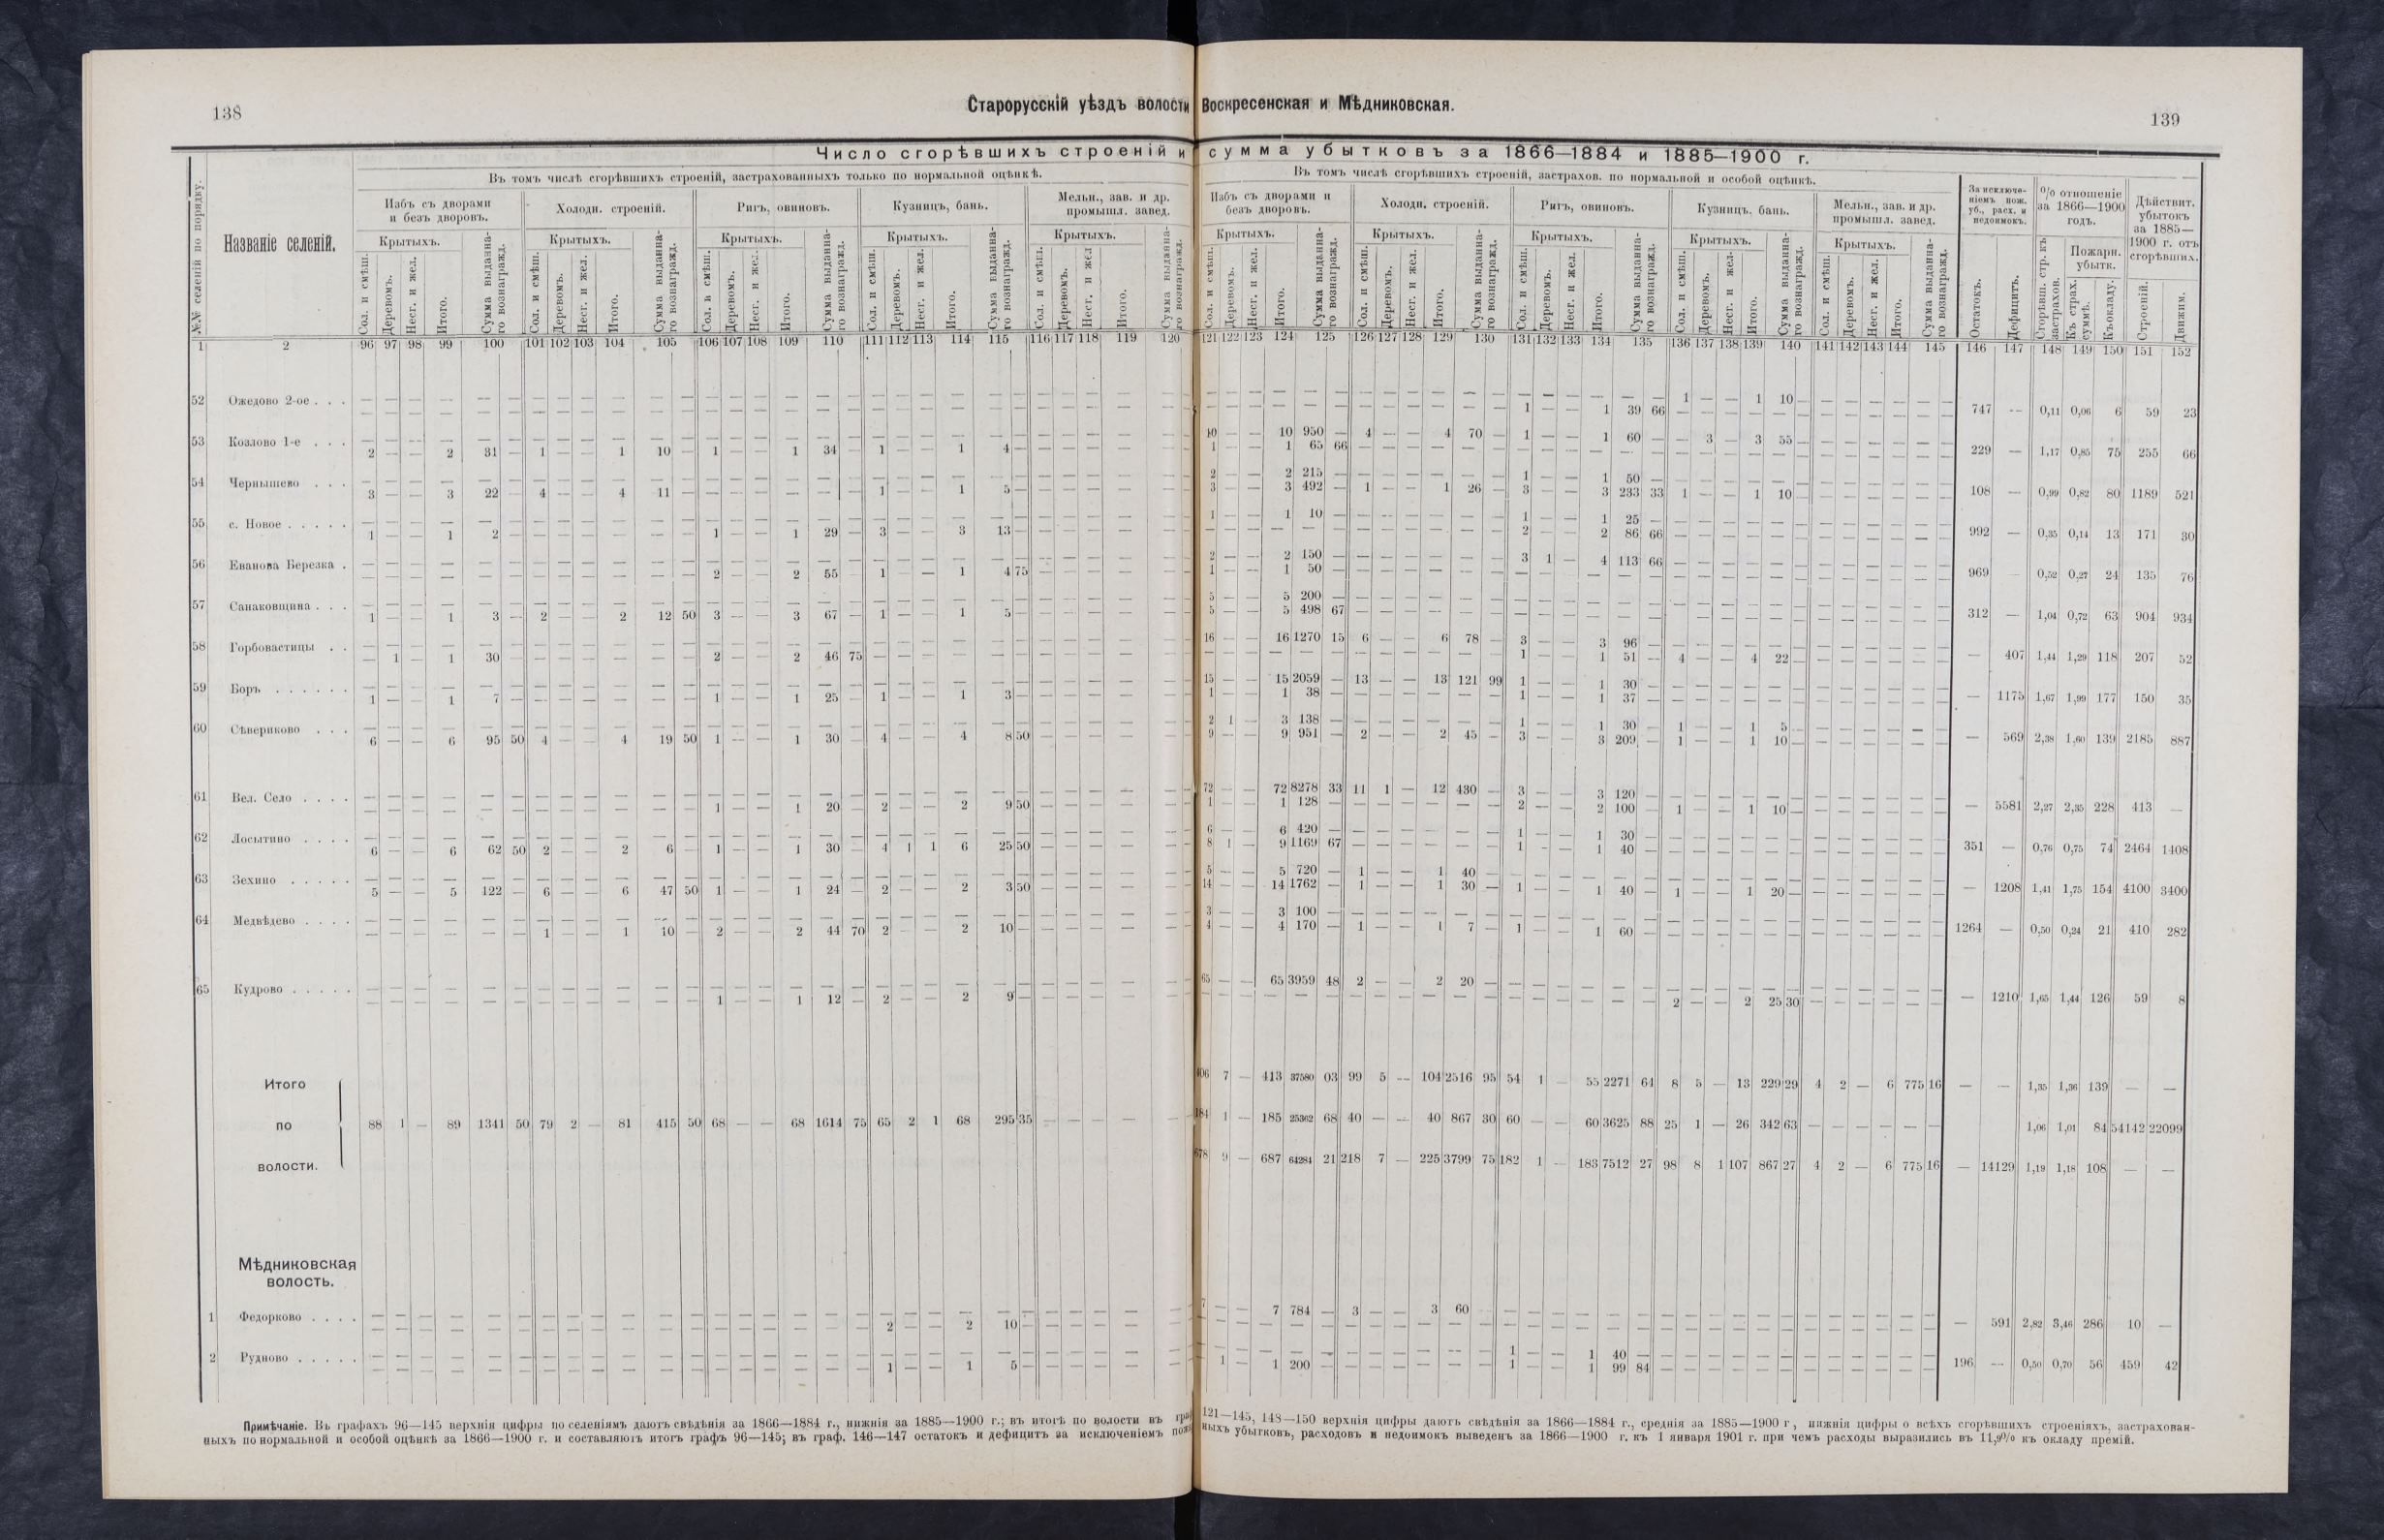 138
Старорусскій уѣздъ волости Воскресенская и Мѣдниковская.
139
Число сгорѣвшихъ строеній и сумма убытковъ за 1866—1884 и 1885—1900 г.
№№ селеній по порядку.
Названіе селеній.
Въ томъ числѣ сгорѣвшихъ строеній, застрахованныхъ только по нормальной оцѣнкѣ.
Избъ съ дворами и безъ дворовъ.
Холодн. строеній.
Ригъ, овиновъ.
Кузницъ, бань.
Мельн., зав. и др. промышл. завед.
Крытыхъ. Крытыхъ. Крытыхъ. Крытыхъ. Крытыхъ.
Сол. и смѣш. Деревомъ. Несг. и жел. Итого. Сумма выданнаго вознагражд.
Въ томъ числѣ сгорѣвшихъ строеній, застрахов. по нормальной и особой оцѣнкѣ.
Избъ съ дворами и безъ дворовъ.
Холодн. строеній.
Ригъ, овиновъ.
Кузницъ, бань.
Мельн., зав. и др. промышл. завед.
Крытыхъ. Крытыхъ. Крытыхъ. Крытыхъ. Крытыхъ.
За исключеніемъ пож. уб., расх. и недоимокъ.
Остатокъ. Дефицитъ.
% отношеніе за 1866—1900 годъ.
Сгорѣвш. стр. къ застрахов.
Пожарн. убытк.
Къ страх. суммѣ. Къ окладу.
Дѣйствит. убытокъ за 1885—1900 г. отъ сгорѣвшихъ.
Строеній. Движим.
1 2 96 97 98 99 100 101 102 103 104 105 106 107 108 109 110 111 112 113 114 115 116 117 118 119 120 121 122 123 124 125 126 127 128 129 130 131 132 133 134 135 136 137 138 139 140 141 142 143 144 145 146 147 148 149 150 151 152
52 Ожедово 2-ое . . . 1 — — 1 10 —
1 — — 1 39 66 747 — 0,11 0,06 6 59 23
53 Козлово 1-е . . . 10 — — 10 950 — 4 — — 4 70 — 1 — — 1 60 — — 3 — 3 55 —
2 — — 2 31 — 1 — — 1 10 — 1 — — 1 34 — 1 — — 1 4 — 1 — — 1 65 66 229 — 1,17 0,85 75 255 66
54 Чернышево . . . 2 — — 2 215 — 1 — — 1 50 —
3 — — 3 22 — 4 — — 4 11 — 1 — — 1 5 — 3 — — 3 492 — 1 — — 1 26 — 3 — — 3 233 33 1 — — 1 10 — 108 — 0,99 0,82 80 1189 521
55 с. Новое . . . . . 1 — — 1 10 — 1 — — 1 25 —
1 — — 1 2 — 1 — — 1 29 — 3 — — 3 13 — 2 — — 2 86 66 992 — 0,35 0,14 13 171 30
56 Еванова Березка . 2 — — 2 150 — 3 1 — 4 113 66
2 — — 2 55 — 1 — — 1 4 75 1 — — 1 50 — 969 — 0,52 0,27 24 135 76
57 Санаковщина . . . 5 — — 5 200 —
1 — — 1 3 — 2 — — 2 12 50 3 — — 3 67 — 1 — — 1 5 — 5 — — 5 498 67 312 — 1,04 0,72 63 904 934
58 Горбовастицы . . 16 — — 16 1270 15 6 — — 6 78 — 3 — — 3 96 —
— 1 — 1 30 — 2 — — 2 46 75 1 — — 1 51 — 4 — — 4 22 — — 407 1,44 1,29 118 207 52
59 Боръ . . . . . . 15 — — 15 2059 — 13 — — 13 121 99 1 — — 1 30 —
1 — — 1 7 — 1 — — 1 25 — 1 — — 1 3 — 1 — — 1 38 — 1 — — 1 37 — — 1175 1,67 1,99 177 150 35
60 Сѣвериково . . . 2 1 — 3 138 — 1 — — 1 30 — 1 — — 1 5 —
6 — — 6 95 50 4 — — 4 19 50 1 — — 1 30 — 4 — — 4 8 50 9 — — 9 951 — 2 — — 2 45 — 3 — — 3 209 — 1 — — 1 10 — — 569 2,38 1,60 139 2185 887
61 Вел. Село . . . . 72 — — 72 8278 33 11 1 — 12 430 — 3 — — 3 120 —
1 — — 1 20 — 2 — — 2 9 50 1 — — 1 128 — 2 — — 2 100 — 1 — — 1 10 — — 5581 2,27 2,35 228 413 —
62 Лосытино . . . . 6 — — 6 420 — 1 — — 1 30 —
6 — — 6 62 50 2 — — 2 6 — 1 — — 1 30 — 4 1 1 6 25 50 8 1 — 9 1169 67 1 — — 1 40 — 351 — 0,76 0,75 74 2464 1408
63 Зехино . . . . . 5 — — 5 720 — 1 — — 1 40 —
5 — — 5 122 — 6 — — 6 47 50 1 — — 1 24 — 2 — — 2 3 50 14 — — 14 1762 — 1 — — 1 30 — 1 — — 1 40 — 1 — — 1 20 — — 1208 1,41 1,75 154 4100 3400
64 Медвѣдево . . . . 3 — — 3 100 —
1 — — 1 10 — 2 — — 2 44 70 2 — — 2 10 — 4 — — 4 170 — 1 — — 1 7 — 1 — — 1 60 — 1264 — 0,50 0,24 21 410 282
65 Кудрово . . . . . 65 — — 65 3959 48 2 — — 2 20 —
1 — — 1 12 — 2 — — 2 9 — 2 — — 2 25 30 — 1210 1,65 1,44 126 59 8
Итого 406 7 — 413 37580 03 99 5 — 104 2516 95 54 1 — 55 2271 64 8 5 — 13 229 29 4 2 — 6 775 16 — — 1,35 1,36 139 — —
по 88 1 — 89 1341 50 79 2 — 81 415 50 68 — — 68 1614 75 65 2 1 68 295 35 — — — — — 184 1 — 185 25362 68 40 — — 40 867 30 60 — — 60 3625 88 25 1 — 26 342 63 — — — — — 1,06 1,01 84 54142 22099
волости. 678 9 — 687 64284 21 218 7 — 225 3799 75 182 1 — 183 7512 27 98 8 1 107 867 27 4 2 — 6 775 16 — 14129 1,19 1,18 108 — —
Мѣдниковская
волость.
1 Федорково . . . . 7 — — 7 784 — 3 — — 3 60
2 — — 2 10 — — 591 2,82 3,46 286 10 —
2 Рудново . . . . . 1 — — 1 40 —
1 — — 1 5 — 1 — 1 200 — 1 — — 1 99 84 196 — 0,50 0,70 56 459 42
Примѣчаніе. Въ графахъ 96—145 верхнія цифры по селеніямъ даютъ свѣдѣнія за 1866—1884 г., нижнія за 1885—1900 г.; въ итогѣ по волости въ граф 121—145, 148—150 верхнія цифры даютъ свѣдѣнія за 1866—1884 г., среднія за 1885—1900 г, нижнія цифры о всѣхъ сгорѣвшихъ строеніяхъ, застрахован-
ныхъ по нормальной и особой оцѣнкѣ за 1866—1900 г. и составляютъ итогъ графъ 96—145; въ граф. 146—147 остатокъ и дефицитъ за исключеніемъ пожарныхъ убытковъ, расходовъ и недоимокъ выведенъ за 1866—1900 г. къ 1 января 1901 г. при чемъ расходы выразились въ 11,9% къ окладу премій.